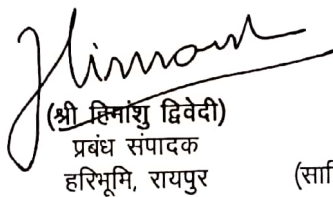 Himanshu
(श्री हिमांशु द्विवेदी)
प्रबंध संपादक
हरिभूमि, रायपुर (सा